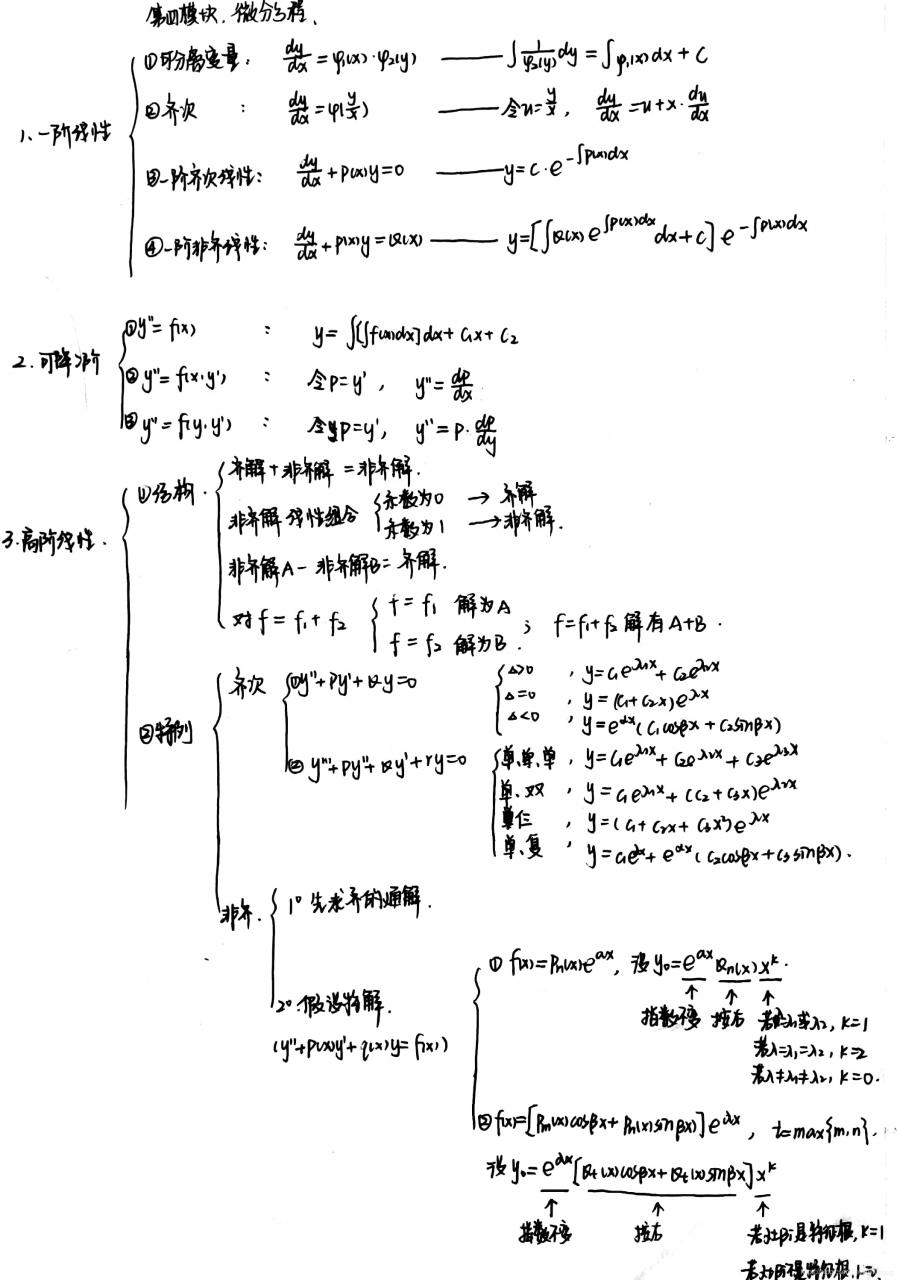 第四模块、微分方程、
1、一阶线性
①可分离变量: dy/dx = φ₁(x)·φ₂(y) —— ∫ 1/φ₂(y) dy = ∫φ₁(x)dx + C
②齐次 : dy/dx = φ(y/x) —— 令u = y/x, dy/dx = u + x·du/dx
③一阶齐次线性: dy/dx + p(x)y = 0 —— y = C·e^{-∫p(x)dx}
④一阶非齐线性: dy/dx + p(x)y = Q(x) —— y = [∫Q(x)e^{∫p(x)dx}dx + C] e^{-∫p(x)dx}
2.可降阶
①y'' = f(x) : y = ∫[∫f(x)dx]dx + C₁x + C₂
②y'' = f(x,y') : 令P = y', y'' = dP/dx
③y'' = f(y,y') : 令P = y', y'' = P·dP/dy
3.高阶线性.
①结构.
齐解 + 非齐解 = 非齐解.
非齐解线性组合
系数为0 → 齐解
系数为1 → 非齐解.
非齐解A - 非齐解B = 齐解.
对f = f₁ + f₂
f = f₁ 解为A
f = f₂ 解为B.
; f = f₁ + f₂ 解有A+B.
②特例
齐次
①y'' + Py' + Qy = 0
Δ>0, y = C₁e^{λ₁x} + C₂e^{λ₂x}
Δ=0, y = (C₁ + C₂x)e^{λx}
Δ<0, y = e^{αx}(C₁cosβx + C₂sinβx)
②y''' + Py'' + Qy' + ry = 0
单、单、单, y = C₁e^{λ₁x} + C₂e^{λ₂x} + C₃e^{λ₃x}
单、双, y = C₁e^{λ₁x} + (C₂ + C₃x)e^{λ₂x}
, y = (C₁ + C₂x + C₃x²)e^{λx}
单、复, y = C₁e^{λx} + e^{αx}(C₂cosβx + C₃sinβx).
非齐.
1° 先求齐的通解.
2°. 假设特解.
(y'' + p(x)y' + q(x)y = f(x))
① f(x) = Pn(x)e^{αx}, 设y₀ = e^{αx}Qn(x)x^k.
↑ ↑ ↑
指数不变 按右 λ₁或λ₂, k=1
若λ=λ₁=λ₂, k=2
若λ≠λ₁≠λ₂, k=0.
②f(x) = [Pm(x)cosβx + Pn(x)sinβx]e^{αx}, t = max{m,n}.
设y₀ = e^{αx}[Qt(x)cosβx + Qt(x)sinβx]x^k
↑ ↑ ↑
指数不变 按右 若α±βi是特征根, k=1
特征根, k=0.